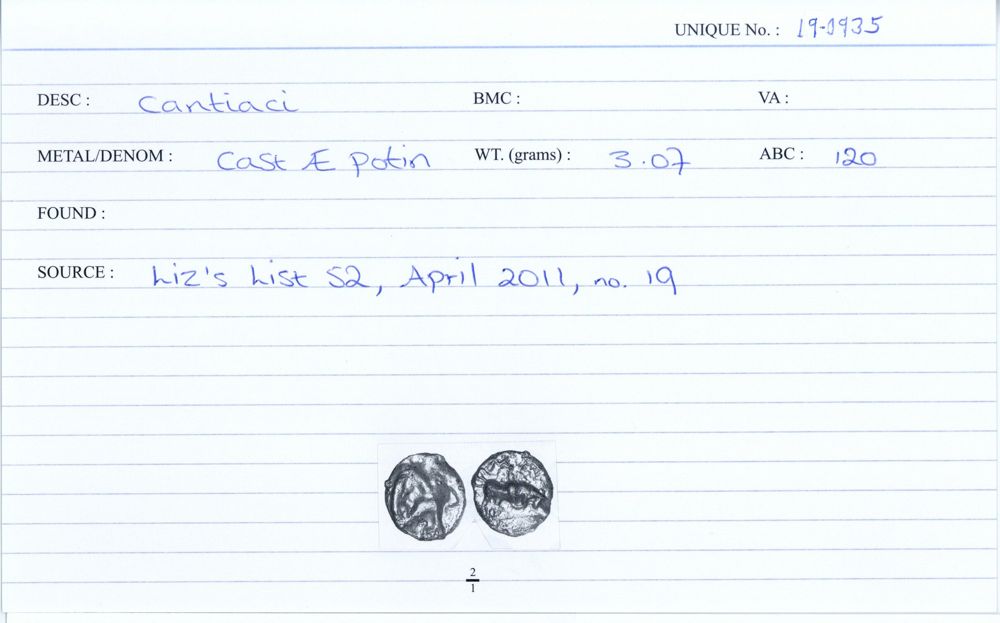 UNIQUE No. : 19-0935
DESC : Cantiaci BMC : VA :
METAL/DENOM : Cast Æ Potin WT. (grams) : 3.07 ABC : 120
FOUND :
SOURCE : Liz's List 52, April 2011, no. 19
2
1